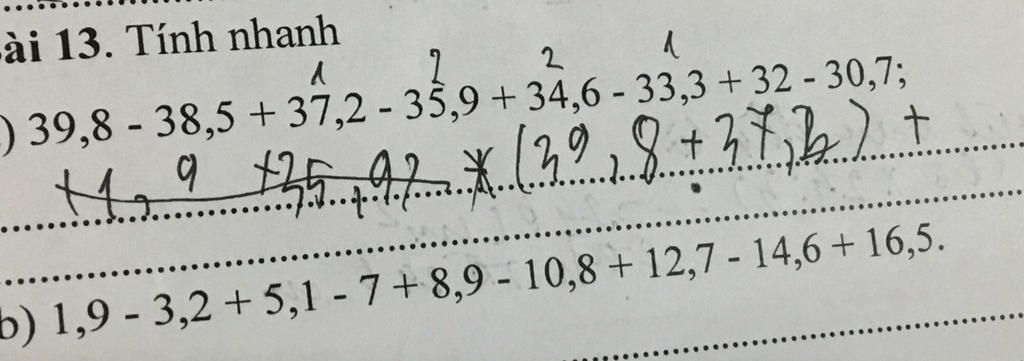 ài 13. Tính nhanh
1 2 2 1
) 39,8 - 38,5 + 37,2 - 35,9 + 34,6 - 33,3 + 32 - 30,7;
(39,8 + 37,2) +
b) 1,9 - 3,2 + 5,1 - 7 + 8,9 - 10,8 + 12,7 - 14,6 + 16,5.